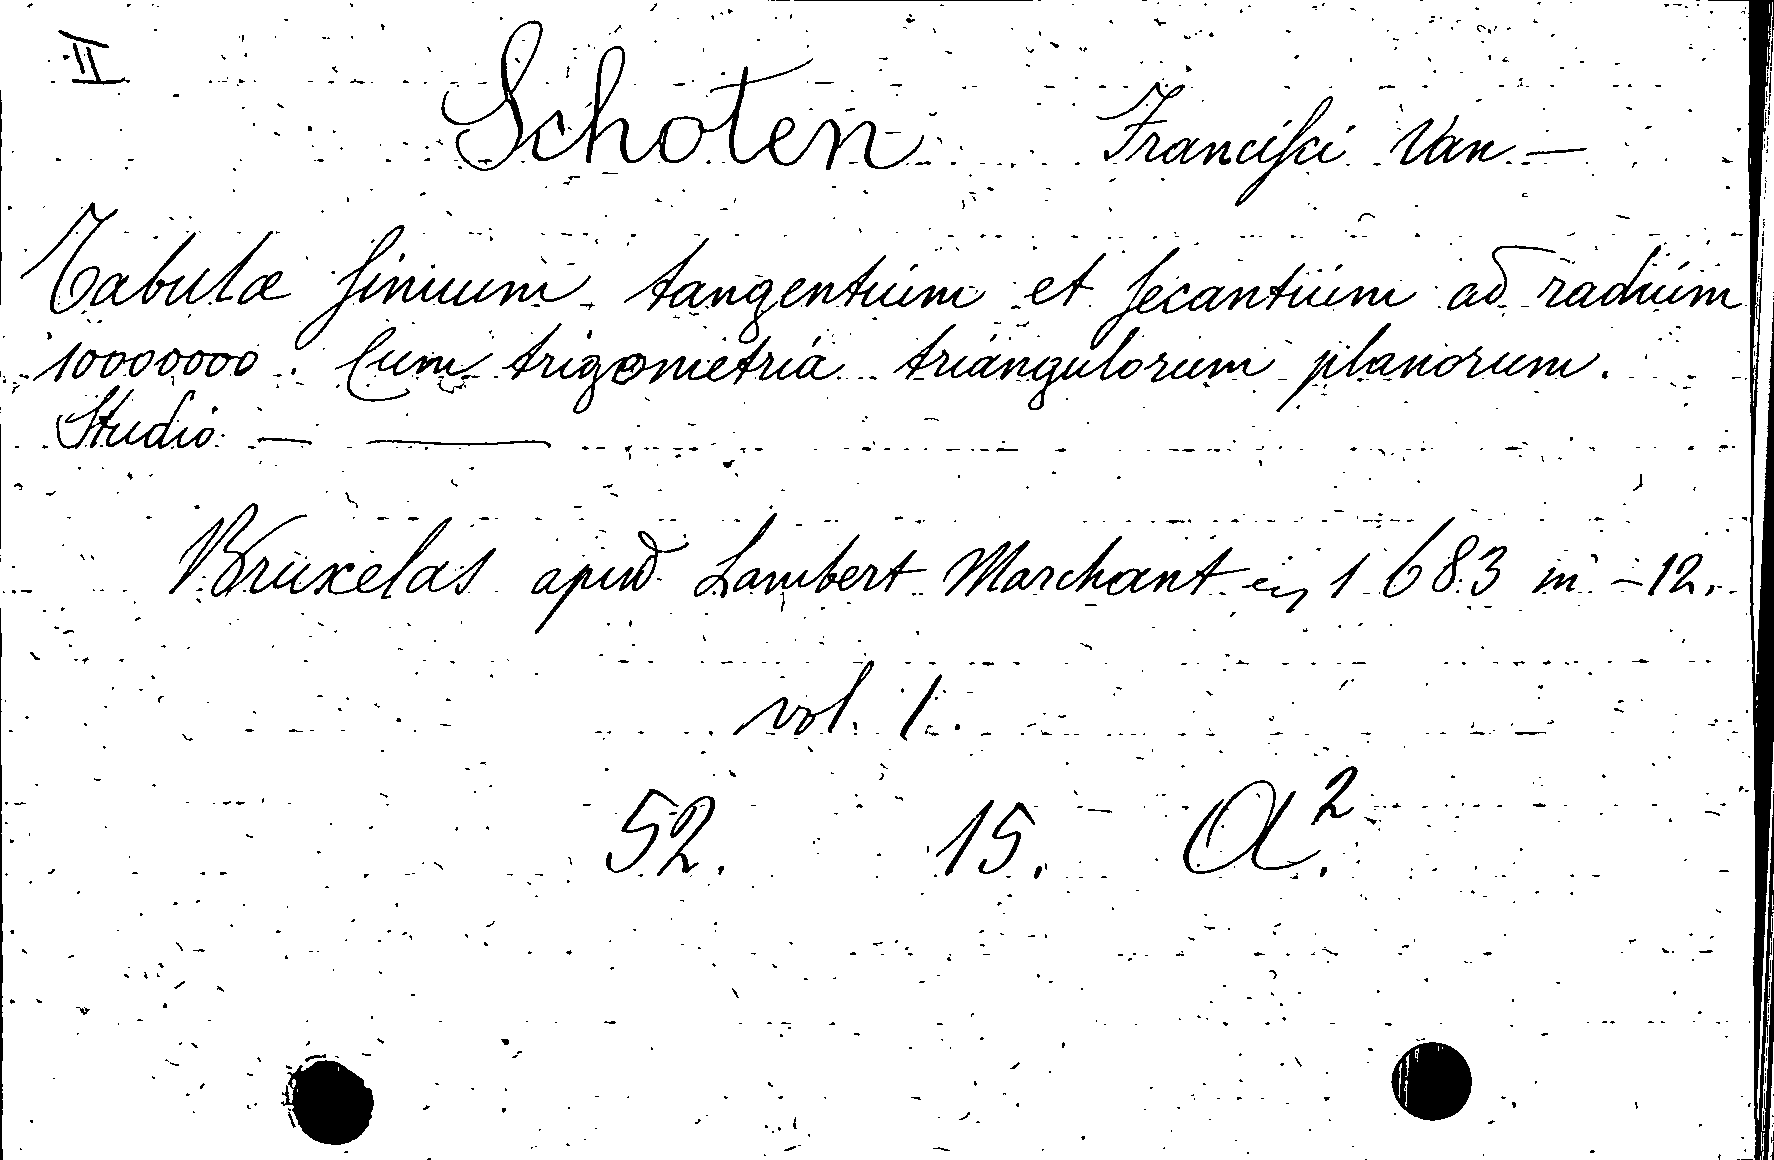 II
Schoten Franciſci Van —
Tabulæ ſinuum tangentium et ſecantium ad radium
10000000. Cum trigometria triangulorum planorum.
Studio — —
Bruxelas apud Lambert Marchant en 1683 in -12.
vol. 1.
52. 15. A².